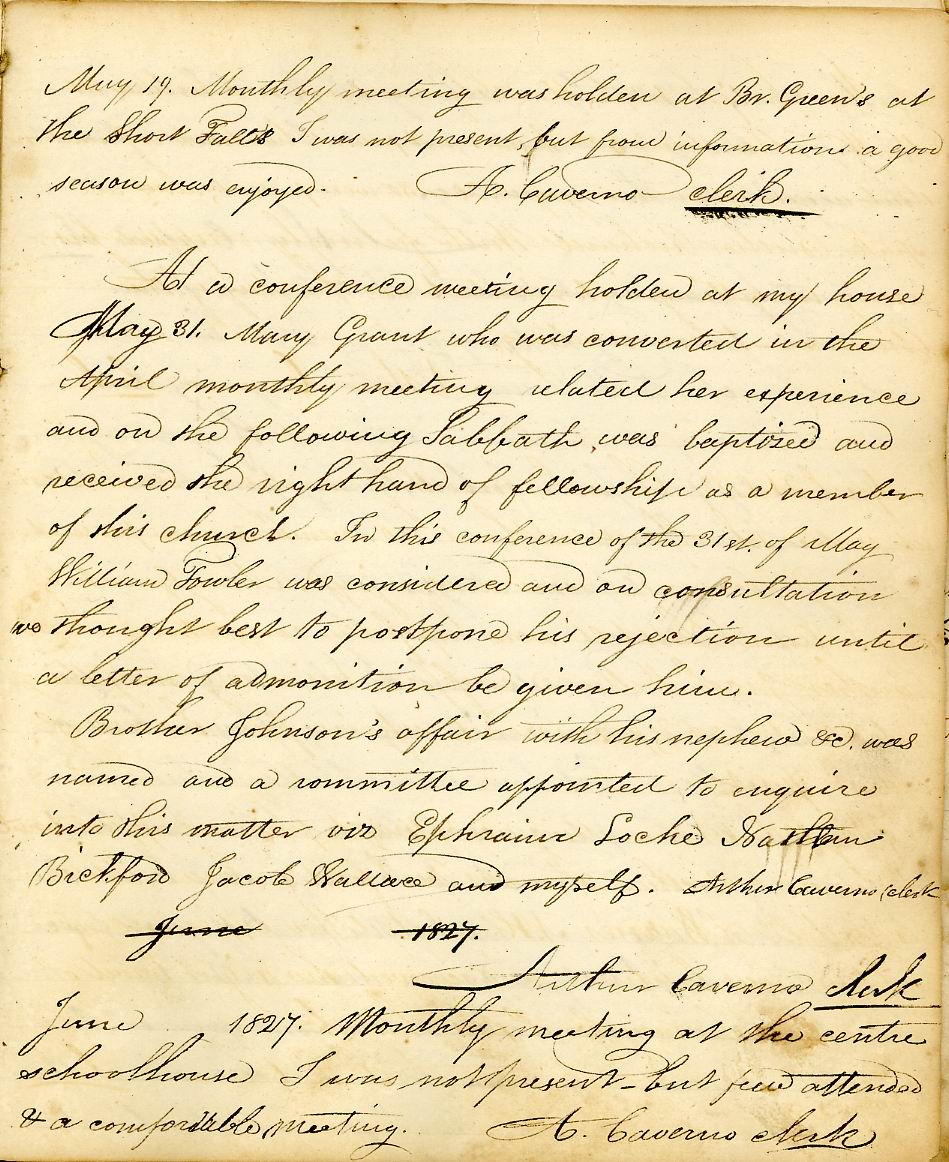 May 19. Monthly meeting was holden at Br. Green's at
the Short Falls I was not present, but from information a good
season was enjoyed. A. Caverno clerk.
At a conference meeting holden at my house
May 31. Mary Grant who was converted in the
April monthly meeting related her experience
and on the following Sabbath was baptized and
received the right hand of fellowship as a member
of this church. In this conference of the 31st. of May
William Fowler was considered and on consultation
we thought best to postpone his rejection until
a letter of admonition be given him.
Brother Johnson's affair with his nephew &c. was
named and a committee appointed to enquire
into this matter viz Ephraim Locke Nathan
Bickford Jacob Wallace and myself. Arthur Caverno clerk
June 1827.
Arthur Caverno clerk
June 1827. Monthly meeting at the centre
schoolhouse I was not present - but few attended
& a comfortable meeting. A. Caverno clerk